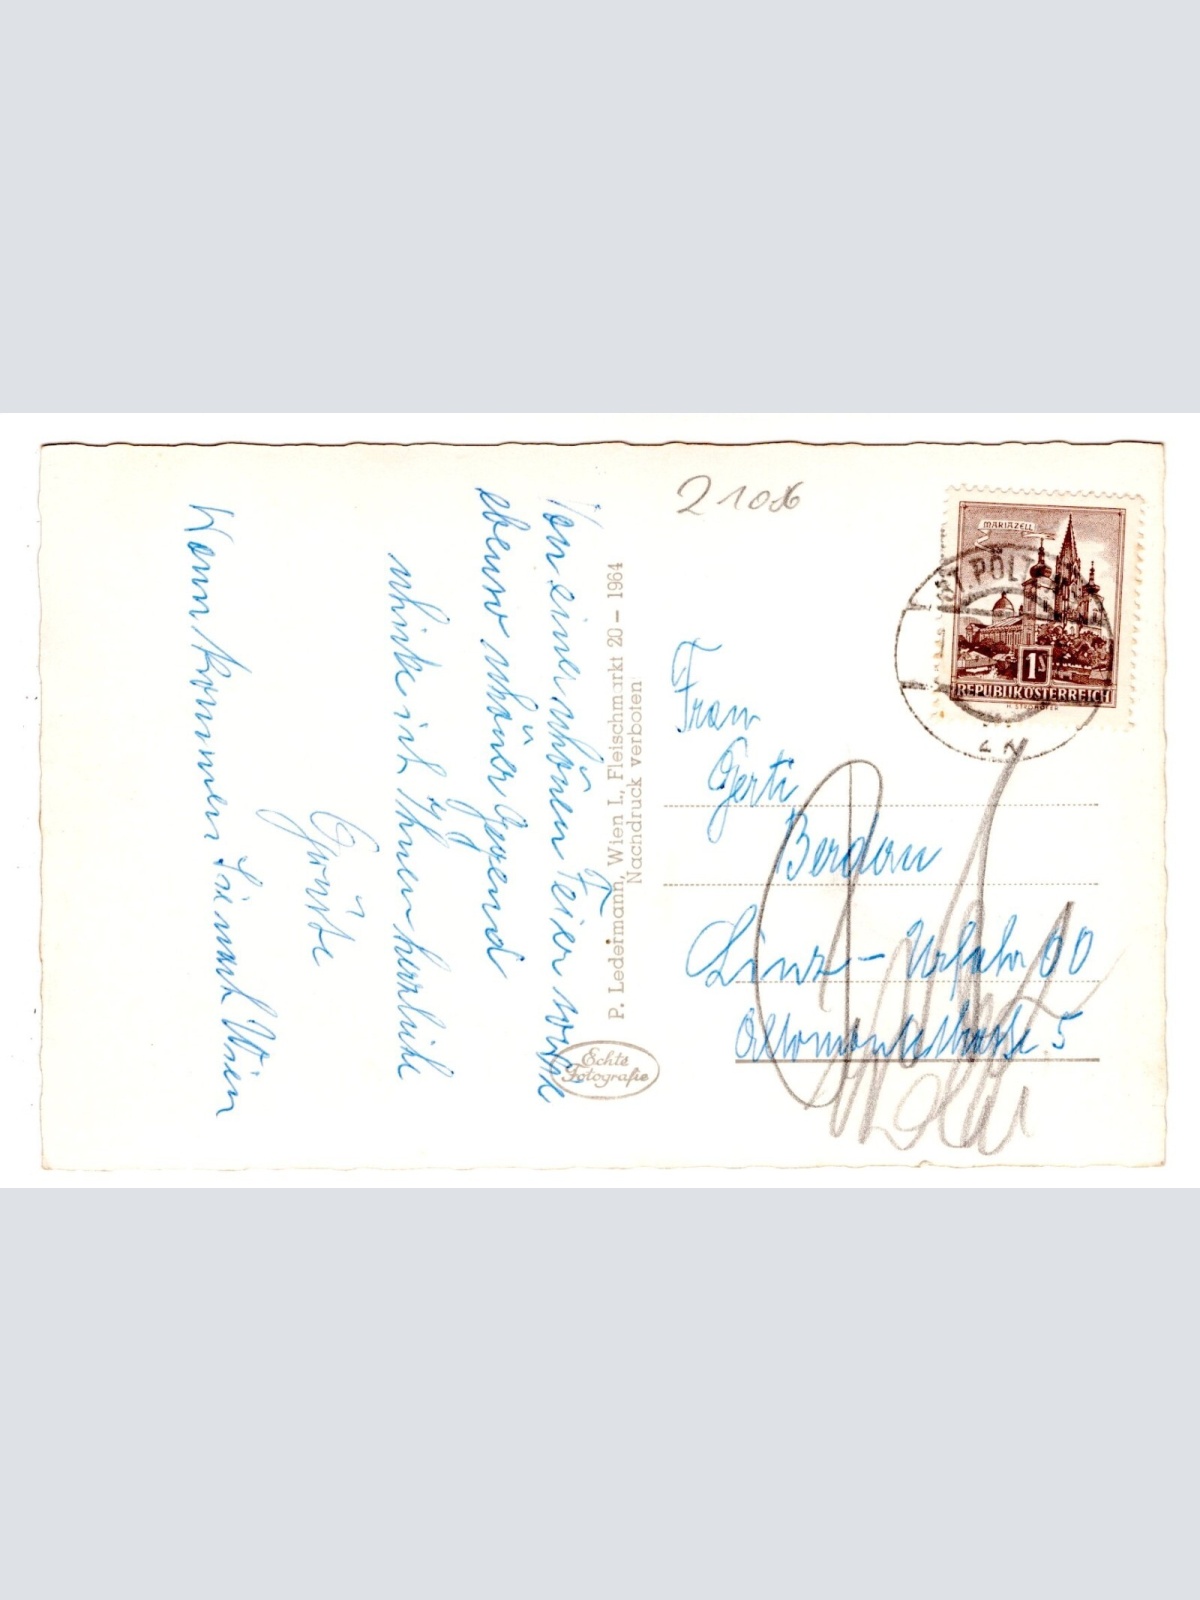 Von einer schönen Feier sowie
ebenso schöner Gegend
schicke ich Ihnen herzliche
Grüße
Wann kommen Sie nach Wien
P. Ledermann, Wien I., Fleischmarkt 20 – 1964
Nachdruck verboten
Echte
Fotografie
2108
MARIAZELL
ST. PÖLT
1S
REPUBLIK ÖSTERREICH
Frau
Gerti
Berdau
Linz – Urfahr
Altomontestraße 5